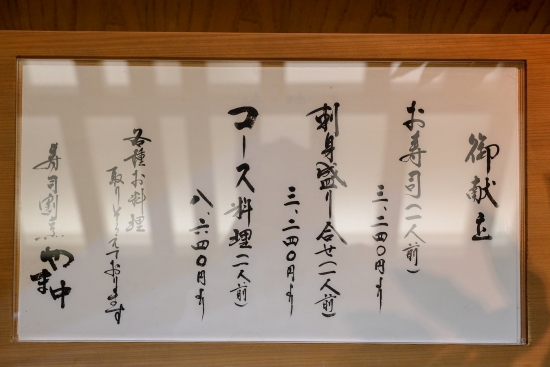 御献立
お寿司(一人前)
三、二四〇円より
刺身盛り合せ(一人前)
三、二四〇円より
コース料理(一人前)
八、六四〇円より
各種お料理
取りそろえております
寿司割烹 やま中